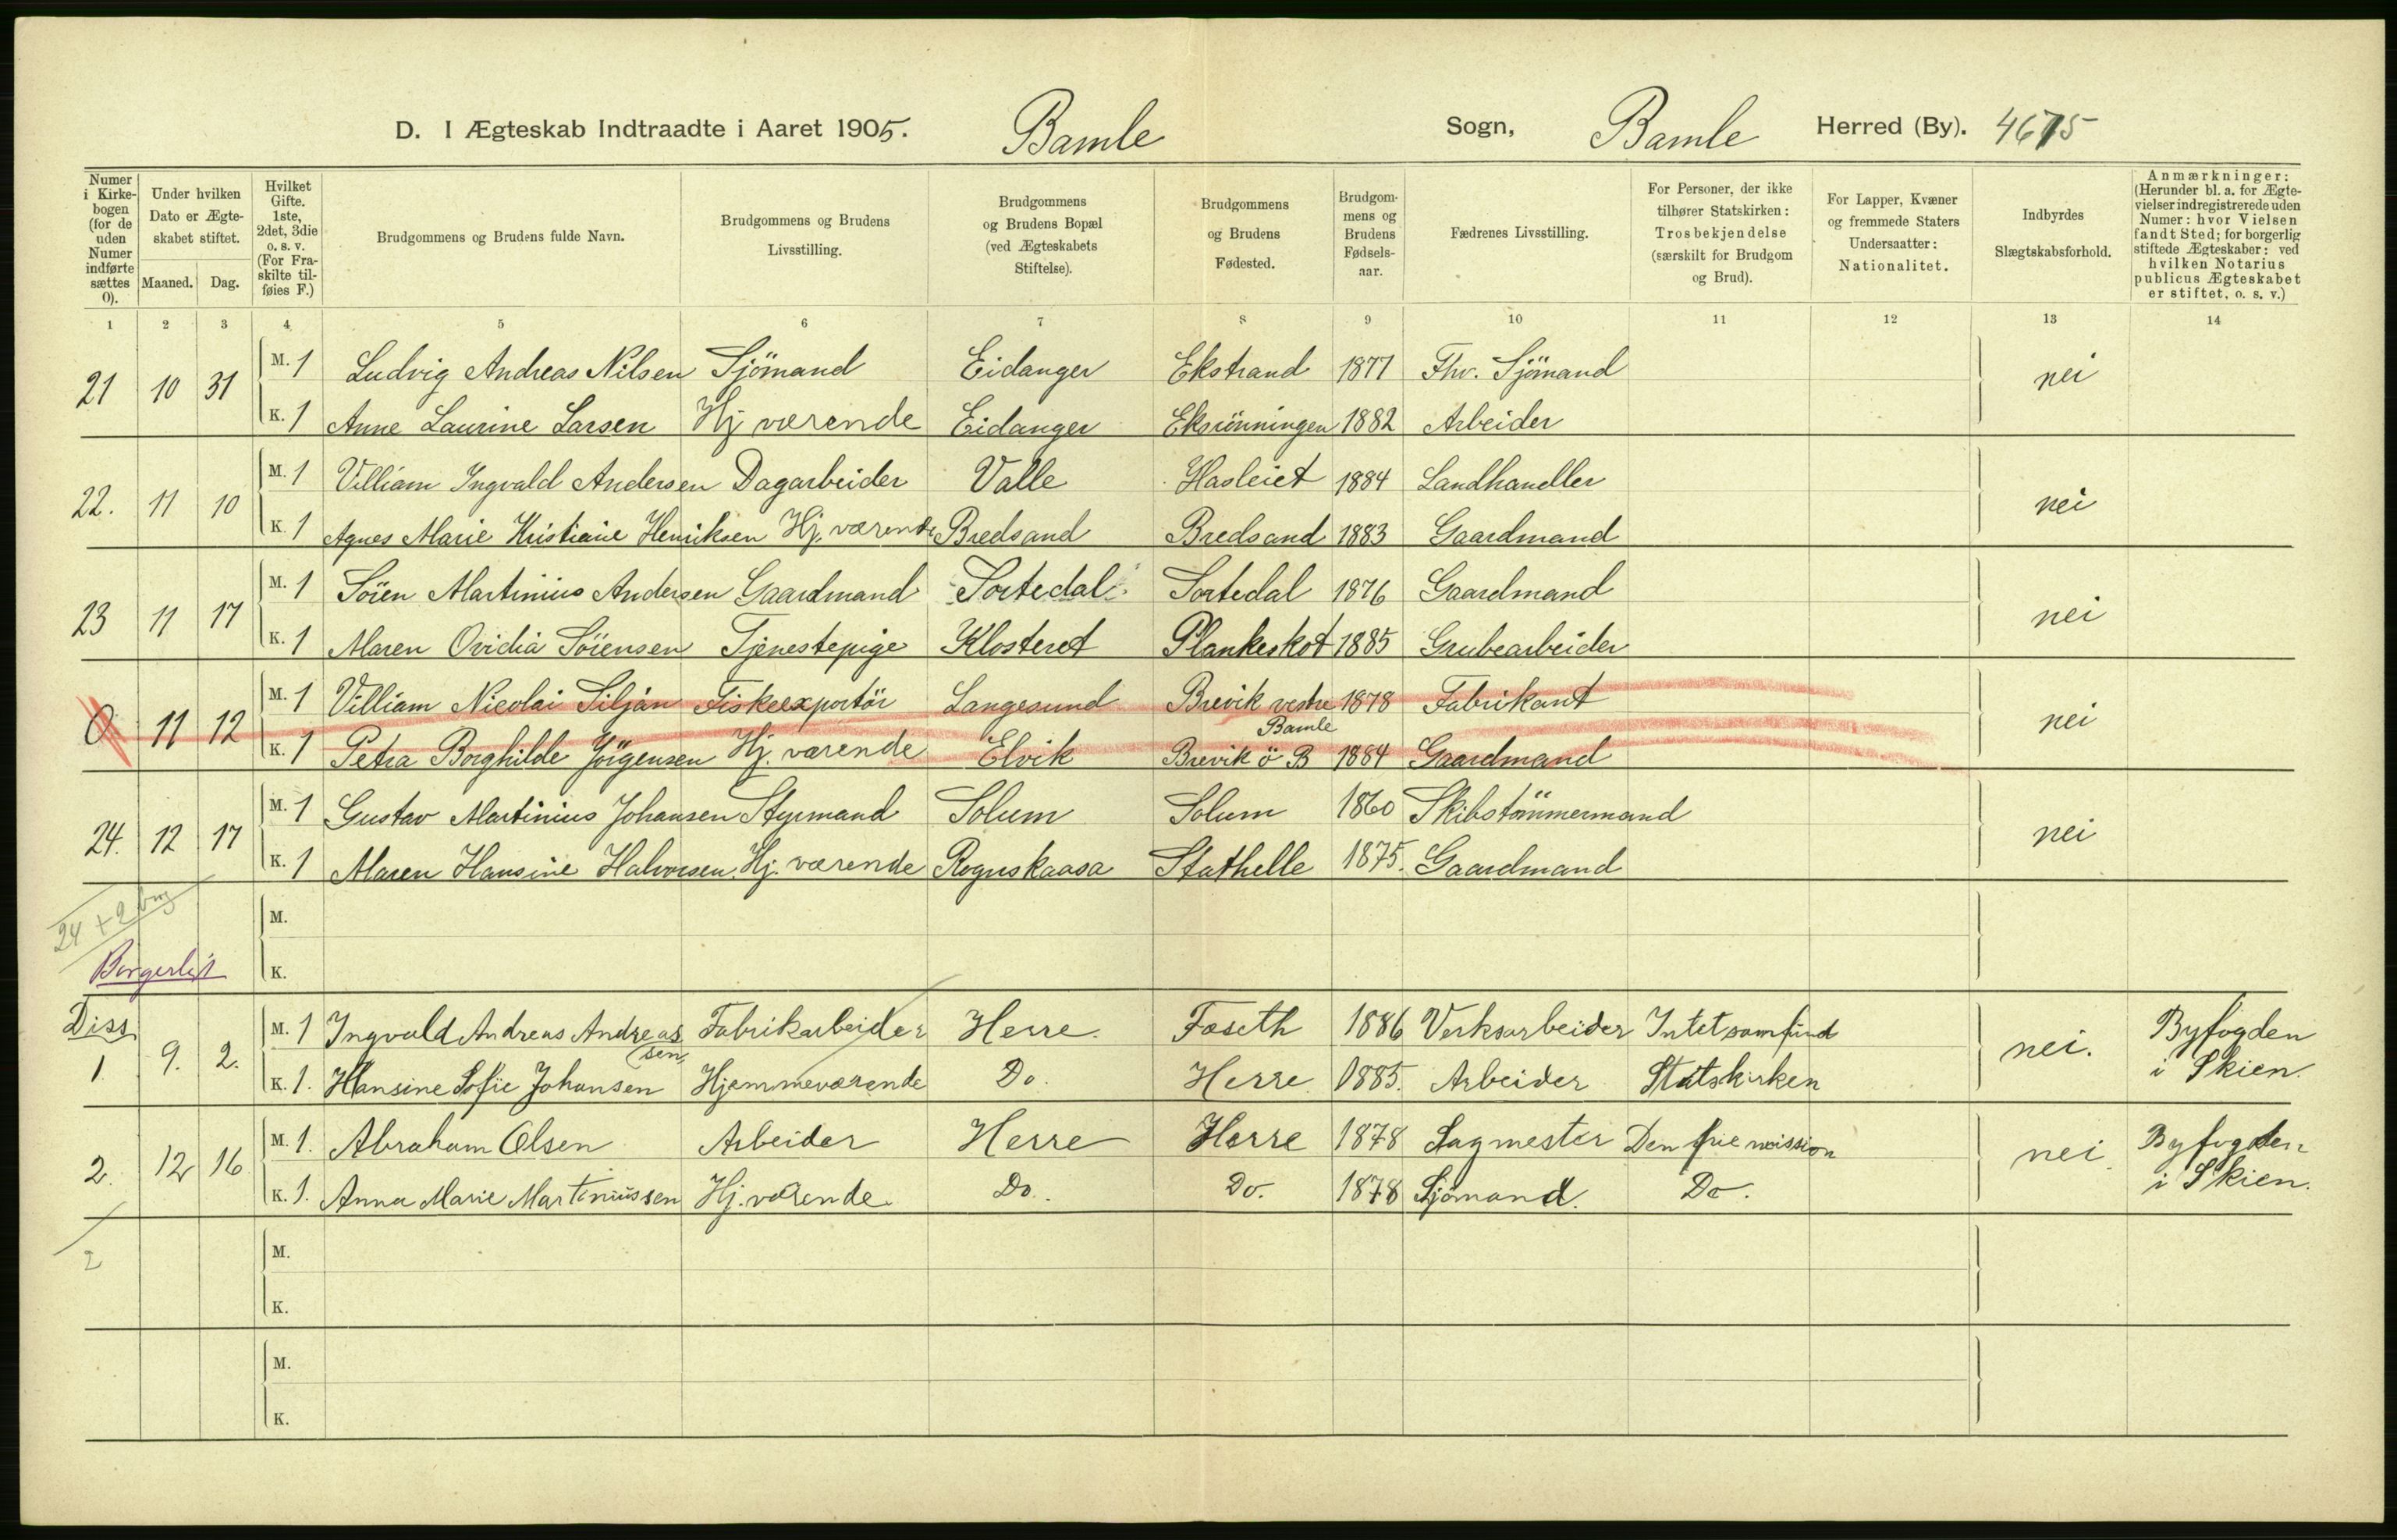 D. I Ægteskab Indtraadte i Aaret 1905. Bamle Sogn, Bamle Herred (By). 4675
Numer i Kirkebogen (for de uden Numer indførte sættes 0).
Under hvilken Dato er Ægteskabet stiftet.
Maaned. Dag.
Hvilket Gifte. 1ste, 2det, 3die o. s. v. (For Fraskilte tilføies F.)
Brudgommens og Brudens fulde Navn.
Brudgommens og Brudens Livsstilling.
Brudgommens og Brudens Bopæl (ved Ægteskabets Stiftelse).
Brudgommens og Brudens Fødested.
Brudgommens og Brudens Fødselsaar.
Fædrenes Livsstilling.
For Personer, der ikke tilhører Statskirken: Trosbekjendelse (særskilt for Brudgom og Brud).
For Lapper, Kvæner og fremmede Staters Undersaatter: Nationalitet.
Indbyrdes Slægtskabsforhold.
Anmærkninger: (Herunder bl. a. for Ægtevielser indregistrerede uden Numer: hvor Vielsen fandt Sted; for borgerlig stiftede Ægteskaber: ved hvilken Notarius publicus Ægteskabet er stiftet, o. s. v.)
1 2 3 4 5 6 7 8 9 10 11 12 13 14
21 10 31 M. 1 Ludvig Andreas Nilsen Sjömand Eidanger Ekstrand 1877 Fhv. Sjömand nei
K. 1 Anne Laurine Larsen Hj værende Eidanger Eksrönningen 1882 Arbeider
22. 11 10 M. 1 Villiam Ingvald Andersen Dagarbeider Valle Hasleiet 1884 Landhandler nei
K. 1 Agnes Marie Kristiane Henriksen Hj. værende Bredsand Bredsand 1883 Gaardmand
23 11 17 M. 1 Sören Martinius Andersen Gaardmand Sortedal Sortedal 1876 Gaardmand nei
K. 1 Maren Ovidia Sörensen Tjenestepige Klosteret Plankeskot 1885 Grubearbeider
0 11 12 M. 1 Villiam Nicolai Siljan Fiskeexportör Langesund Brevik vestre Bamle 1878 Fabrikant nei
K. 1 Petra Borghilde Jörgensen Hj. værende Elvik Brevik ö B 1884 Gaardmand
24. 12 17 M. 1 Gustav Martinius Johansen Styrmand Solum Solum 1860 Skibstömmermand nei
K. 1 Maren Hansine Halvorsen. Hj. værende Rognskaasa Stathelle 1875. Gaardmand
24 + 2 borg
M.
Borgerligt K.
Diss
1. 9. 2. M. 1 Ingvald Andreas Andreassen Fabrikarbeider Herre. Foseth 1886 Verksarbeider Intet samfund nei. Byfogden
K. 1. Hansine Sofie Johansen Hjemmeværende Do. Herre 1885. Arbeider Statskirken i Skien.
2. 12 16 M. 1. Abraham Olsen Arbeider Herre Herre 1878 Sagmester Den frie mission nei. Byfogden
K. 1. Anna Marie Martiniussen Hj. værende. Do. Do. 1878 Sjömand. Do. i Skien.
2
M.
K.
M.
K.